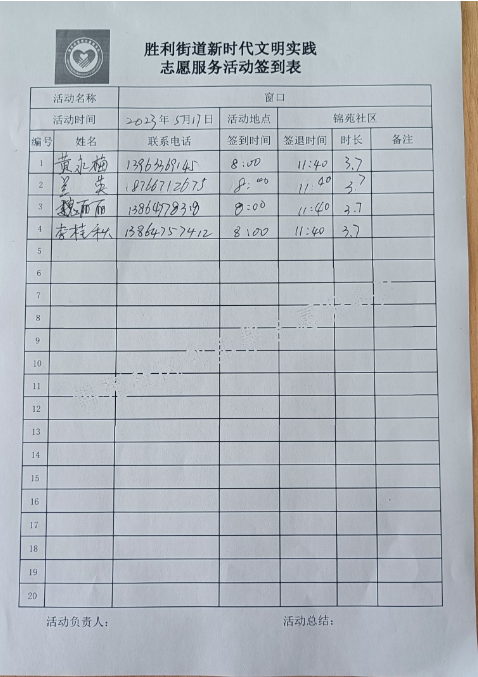 胜利街道新时代文明实践
志愿服务活动签到表
活动名称 窗口
活动时间 2023年5月17日 活动地点 锦苑社区
编号 姓名 联系电话 签到时间 签退时间 时长 备注
1 黄永梅 13963369145 8:00 11:40 3.7
2 兰英 18766712675 8:00 11:40 3.7
3 魏丽丽 8:00 11:40 3.7
4 李桂秋 13864757412 8:00 11:40 3.7
5
6
7
8
9
10
11
12
13
14
15
16
17
18
19
20
活动负责人: 活动总结: